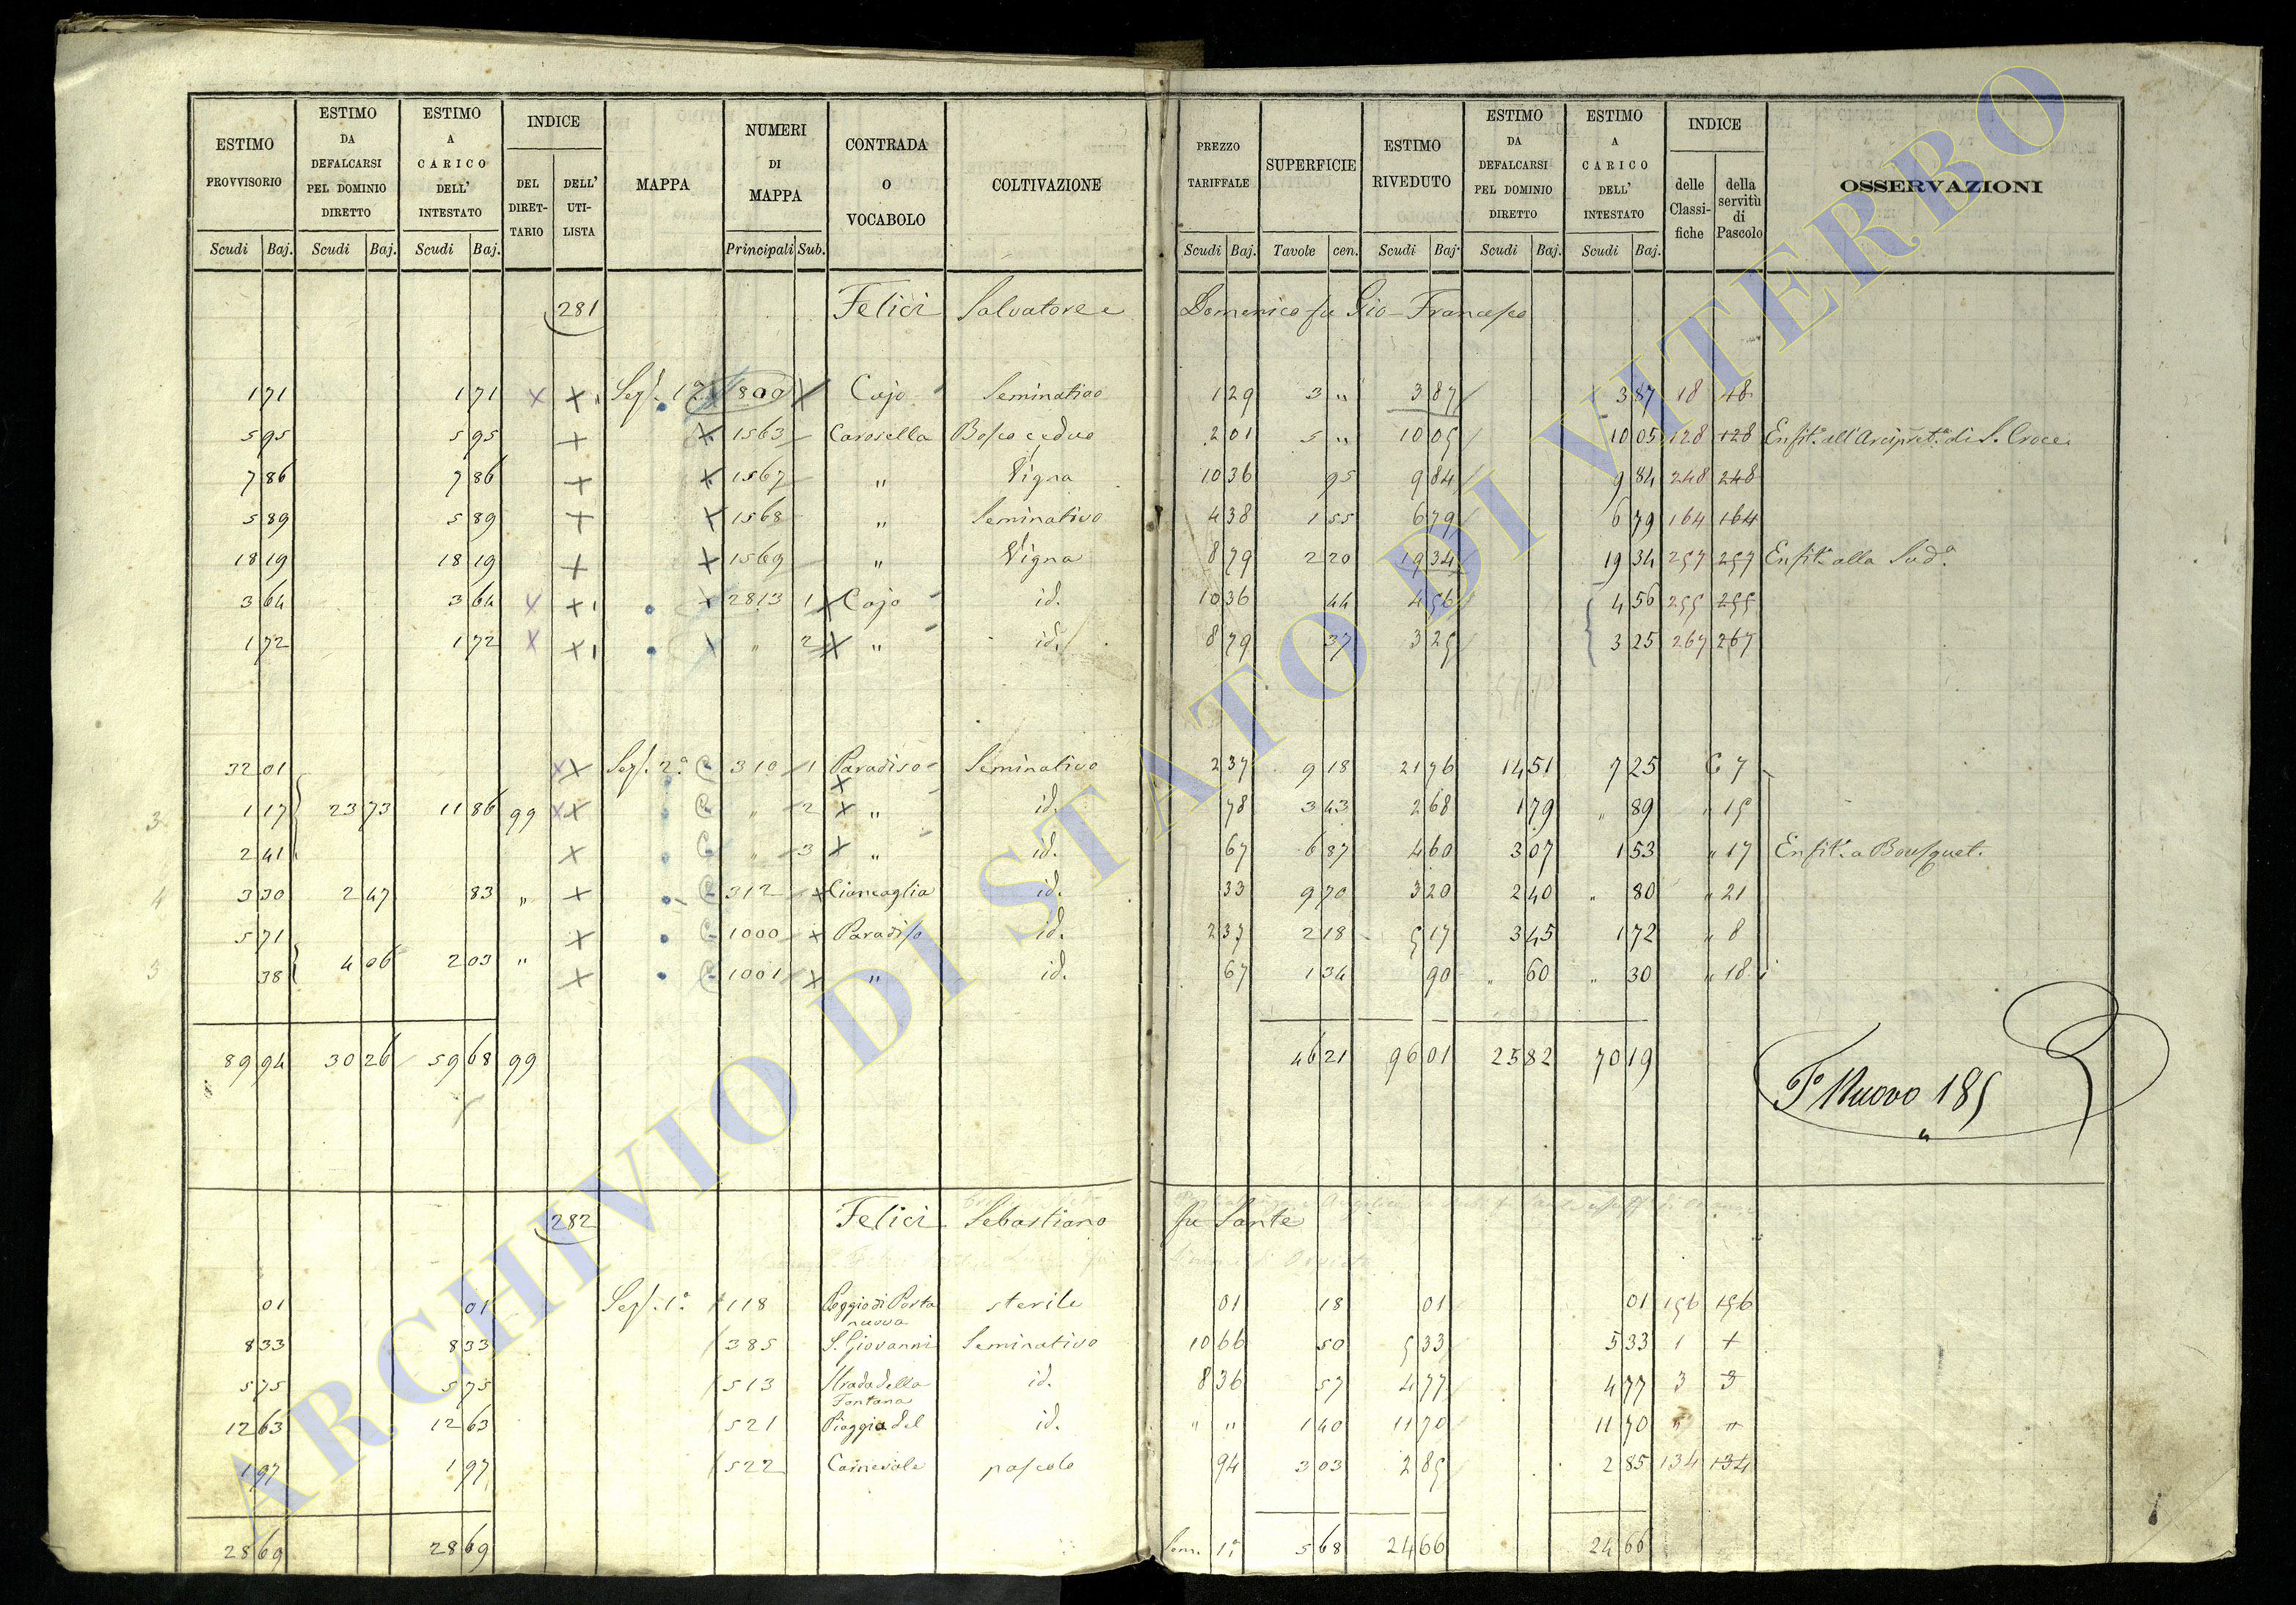 ESTIMO PROVVISORIO | ESTIMO DA DEFALCARSI PEL DOMINIO DIRETTO | ESTIMO A CARICO DELL' INTESTATO | INDICE | MAPPA | NUMERI DI MAPPA | CONTRADA O VOCABOLO | COLTIVAZIONE | PREZZO TARIFFALE | SUPERFICIE | ESTIMO RIVEDUTO | ESTIMO DA DEFALCARSI PEL DOMINIO DIRETTO | ESTIMO A CARICO DELL' INTESTATO | INDICE | OSSERVAZIONI
DEL DIRET-TARIO | DELL' UTI-LISTA | delle Classi-fiche | della servitù di Pascolo
Scudi Baj. | Scudi Baj. | Scudi Baj. | Principali Sub. | Scudi Baj. | Tavole cen. | Scudi Baj. | Scudi Baj. | Scudi Baj.
281 Felici Salvatore e Domenico fu Gio Francesco
1 71 | 1 71 | x | x | Sez. 1ª | 800 | Cajo | Seminativo | 1 29 | 3 " | 3 87 | 3 87 | 18 | 18
5 95 | 5 95 | x | x 1563 | Carosella | Bosco ceduo | 2 01 | 5 " | 10 05 | 10 05 | 128 | 128 | Enfit. all'Arcipret.ª di S. Croce
7 86 | 7 86 | x | x 1567 | " | Vigna | 10 36 | 95 | 9 84 | 9 84 | 248 | 248
5 89 | 5 89 | x | x 1568 | " | Seminativo | 4 38 | 1 55 | 6 79 | 6 79 | 164 | 164
18 19 | 18 19 | x | x 1569 | " | Vigna | 8 79 | 2 20 | 19 34 | 19 34 | 257 | 257 | Enfit. alla Sud.ª
3 64 | 3 64 | x | x | x 2813 | 1 | Cajo | id. | 10 36 | 44 | 4 56 | 4 56 | 255 | 255
1 72 | 1 72 | x | x | x " | 2 | " | id. | 8 79 | 37 | 3 25 | 3 25 | 267 | 267
32 01 | x x | Sez. 2ª | 310 | 1 | Paradiso | Seminativo | 2 37 | 9 18 | 21 76 | 14 51 | 7 25 | C 7
3 | 1 17 | 23 73 | 11 86 | 99 | x x | " | 2 | x " | id. | 78 | 3 43 | 2 68 | 1 79 | " 89 | " 15
2 41 | x | " | 3 | x " | id. | 67 | 6 87 | 4 60 | 3 07 | 1 53 | " 17 | Enfit. a Bousquet.
4 | 3 30 | 2 47 | 83 | " | x | 312 | x | Ciuncaglia | id. | 33 | 9 70 | 3 20 | 2 40 | " 80 | " 21
5 71 | x | 1000 | x | Paradiso | id. | 2 37 | 2 18 | 5 17 | 3 45 | 1 72 | " 8
3 | 38 | 4 06 | 2 03 | " | x | 1001 | x | " | id. | 67 | 1 34 | 90 | " 60 | " 30 | " 18
89 94 | 30 26 | 59 68 | 99 | 46 21 | 96 01 | 25 82 | 70 19
Fº Nuovo 185
282 Felici Sebastiano fu Sante
01 | 01 | Sez. 1ª | 118 | Poggio di Porta nuova | sterile | 01 | 18 | 01 | 01 | 156 | 156
8 33 | 8 33 | 385 | S. Giovanni | Seminativo | 10 66 | 50 | 5 33 | 5 33 | 1 | 1
5 75 | 5 75 | 513 | Strada della Fontana | id. | 8 36 | 57 | 4 77 | 4 77 | 3 | 3
12 63 | 12 63 | 521 | Piaggia del | id. | " " | 1 40 | 11 70 | 11 70 | " | "
1 97 | 1 97 | 522 | Carnevale | pascolo | 94 | 3 03 | 2 85 | 2 85 | 134 | 134
28 69 | 28 69 | 5 68 | 24 66 | 24 66
ARCHIVIO DI STATO DI VITERBO